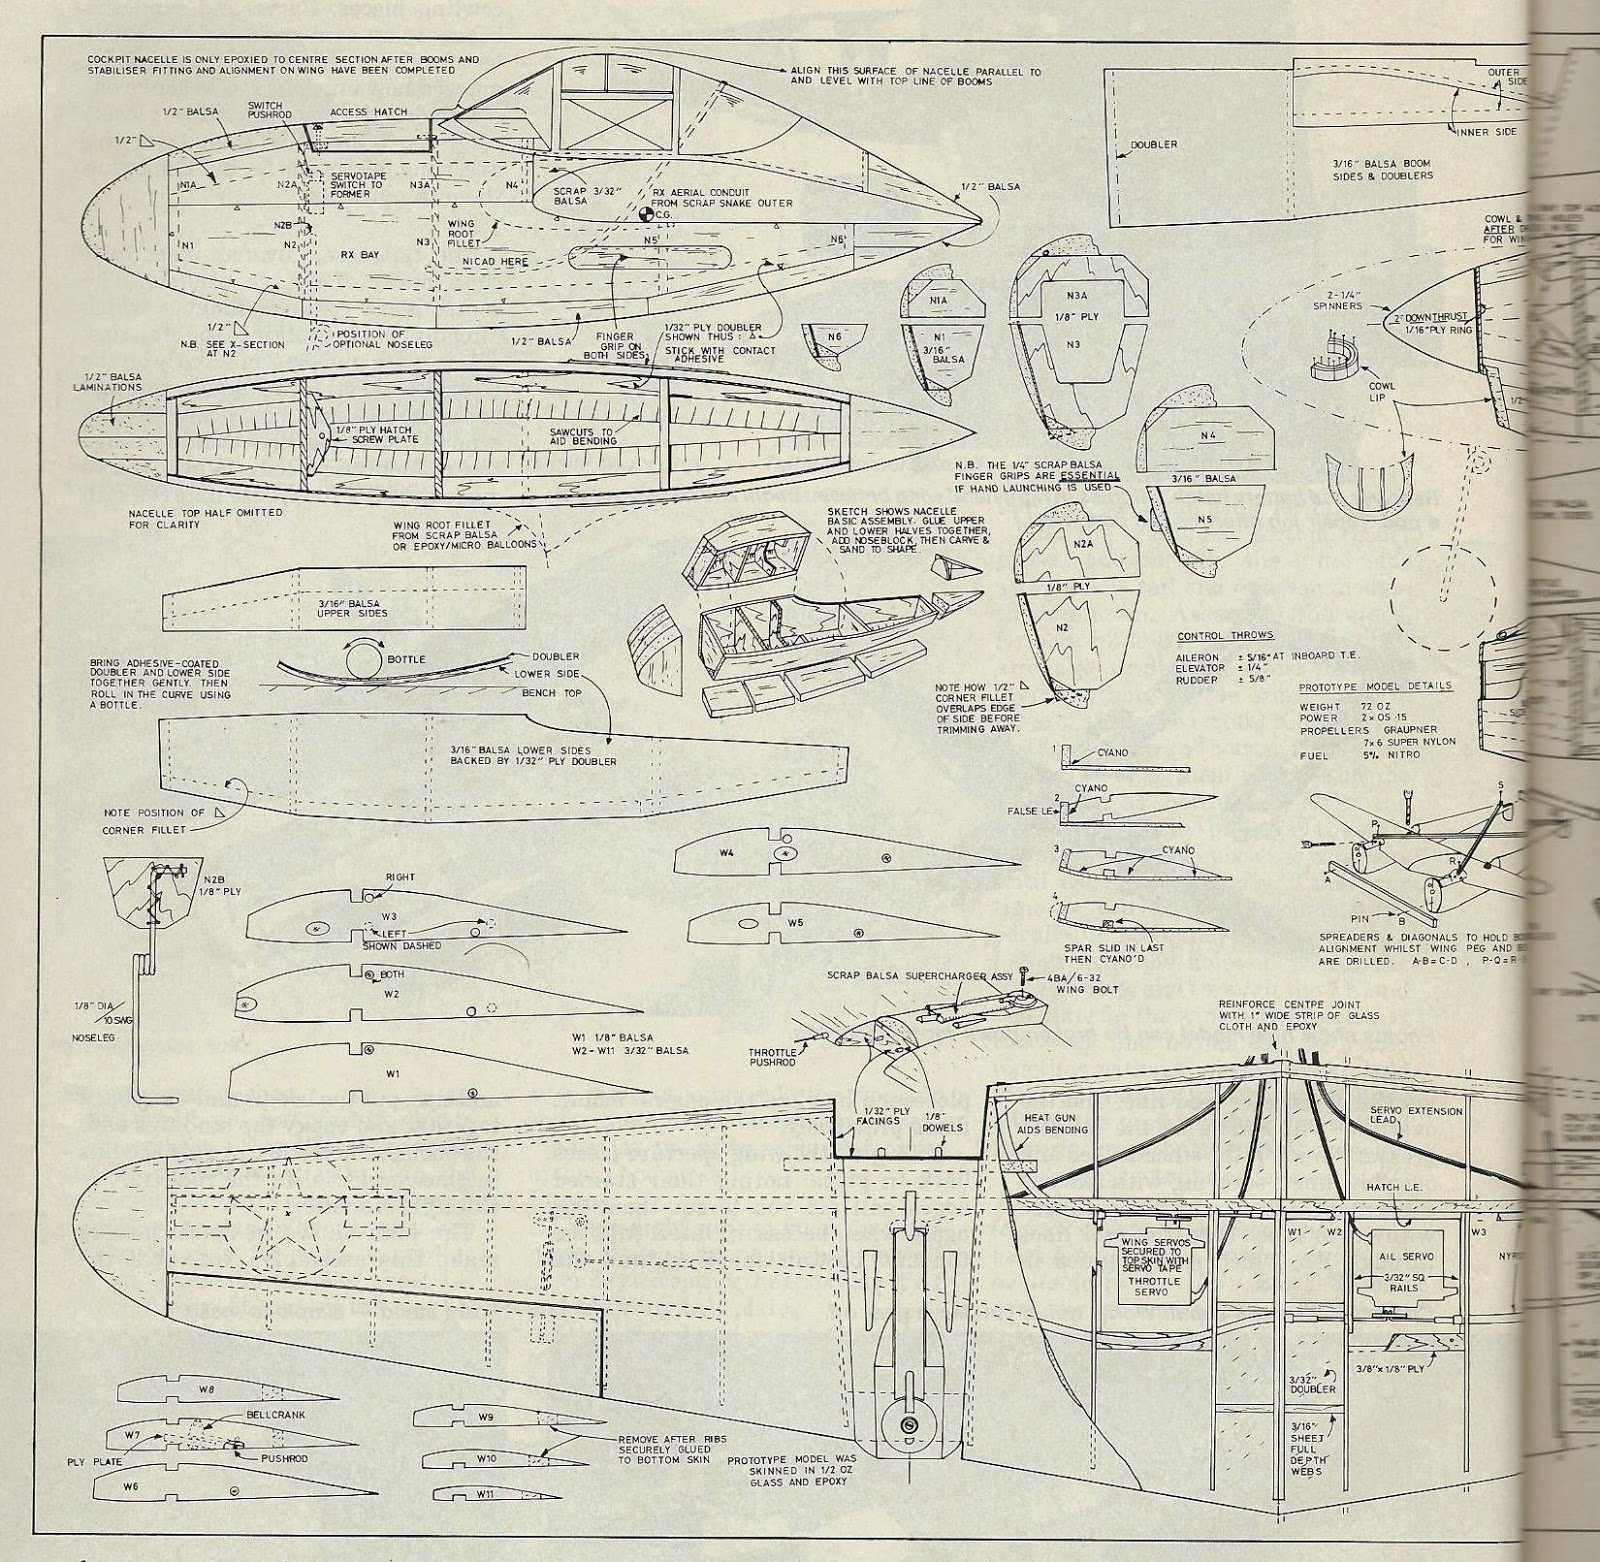 COCKPIT NACELLE IS ONLY EPOXIED TO CENTRE SECTION AFTER BOOMS AND
STABILISER FITTING AND ALIGNMENT ON WING HAVE BEEN COMPLETED
ALIGN THIS SURFACE OF NACELLE PARALLEL TO
AND LEVEL WITH TOP LINE OF BOOMS
1/2" BALSA
SWITCH
PUSHROD
ACCESS HATCH
1/2"
N1A
N2A
SERVOTAPE
SWITCH TO
FORMER
N3A
N4
SCRAP 3/32"
BALSA
RX AERIAL CONDUIT
FROM SCRAP SNAKE OUTER
C.G.
1/2" BALSA
N2B
WING
ROOT
FILLET
N1
N2
RX BAY
N3
NICAD HERE
N5
N6
1/2"
N.B. SEE X-SECTION
AT N2
POSITION OF
OPTIONAL NOSELEG
1/2" BALSA
FINGER
GRIP ON
BOTH SIDES
1/32" PLY DOUBLER
SHOWN THUS :
STICK WITH CONTACT
ADHESIVE
OUTER
SIDE
INNER SIDE
DOUBLER
3/16" BALSA BOOM
SIDES & DOUBLERS
COWL &
AFTER
FOR
2-1/4"
SPINNERS
2° DOWNTHRUST
1/16" PLY RING
COWL
LIP
1/2"
N1A
N6
N1
3/16"
BALSA
N3A
1/8" PLY
N3
N4
3/16" BALSA
N5
1/2" BALSA
LAMINATIONS
1/8" PLY HATCH
SCREW PLATE
SAWCUTS TO
AID BENDING
NACELLE TOP HALF OMITTED
FOR CLARITY
WING ROOT FILLET
FROM SCRAP BALSA
OR EPOXY/MICRO BALLOONS
N.B. THE 1/4" SCRAP BALSA
FINGER GRIPS ARE ESSENTIAL
IF HAND LAUNCHING IS USED
SKETCH SHOWS NACELLE
BASIC ASSEMBLY. GLUE UPPER
AND LOWER HALVES TOGETHER,
ADD NOSEBLOCK, THEN CARVE &
SAND TO SHAPE.
N2A
1/8" PLY
N2
3/16" BALSA
UPPER SIDES
BOTTLE
DOUBLER
LOWER SIDE
BENCH TOP
BRING ADHESIVE-COATED
DOUBLER AND LOWER SIDE
TOGETHER GENTLY, THEN
ROLL IN THE CURVE USING
A BOTTLE.
3/16" BALSA LOWER SIDES
BACKED BY 1/32" PLY DOUBLER
NOTE POSITION OF
CORNER FILLET
NOTE HOW 1/2"
CORNER FILLET
OVERLAPS EDGE
OF SIDE BEFORE
TRIMMING AWAY.
CONTROL THROWS
AILERON ± 5/16" AT INBOARD T.E.
ELEVATOR ± 1/4"
RUDDER ± 5/8"
PROTOTYPE MODEL DETAILS
WEIGHT 72 OZ
POWER 2 x OS ·15
PROPELLERS GRAUPNER
7x6 SUPER NYLON
FUEL 5% NITRO
1
CYANO
2
CYANO
FALSE LE
3
CYANO
4
SPAR SLID IN LAST
THEN CYANO'D
P
S
R
A
PIN
B
SPREADERS & DIAGONALS TO HOLD
ALIGNMENT WHILST WING PEG AND
ARE DRILLED. A-B=C-D , P-Q=R-S
N2B
1/8" PLY
1/8" DIA/
10 SWG
NOSELEG
RIGHT
W3
LEFT
SHOWN DASHED
BOTH
W2
W1
W4
W5
W1 1/8" BALSA
W2-W11 3/32" BALSA
SCRAP BALSA SUPERCHARGER ASSY
4BA/6-32
WING BOLT
THROTTLE
PUSHROD
REINFORCE CENTRE JOINT
WITH 1" WIDE STRIP OF GLASS
CLOTH AND EPOXY
1/32" PLY
FACINGS
1/8"
DOWELS
HEAT GUN
AIDS BENDING
SERVO EXTENSION
LEAD
HATCH L.E.
WING SERVOS
SECURED TO
TOP SKIN WITH
SERVO TAPE
THROTTLE
SERVO
W1
W2
AIL SERVO
W3
3/32" SQ
RAILS
3/8" x 1/8" PLY
3/32"
DOUBLER
3/16"
SHEET
FULL
DEPTH
WEBS
W8
BELLCRANK
W7
PLY PLATE
PUSHROD
W6
W9
W10
W11
REMOVE AFTER RIBS
SECURELY GLUED
TO BOTTOM SKIN
PROTOTYPE MODEL WAS
SKINNED IN 1/2 OZ
GLASS AND EPOXY